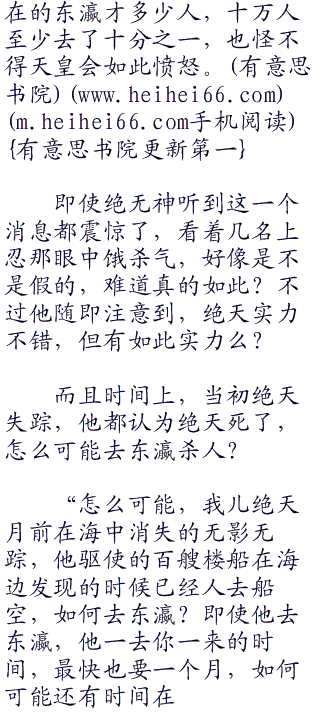 在的东瀛才多少人，十万人
至少去了十分之一，也怪不
得天皇会如此愤怒。(有意思
书院) (www.heihei66.com)
(m.heihei66.com手机阅读)
{有意思书院更新第一}
即使绝无神听到这一个
消息都震惊了，看着几名上
忍那眼中饿杀气，好像是不
是假的，难道真的如此？不
过他随即注意到，绝天实力
不错，但有如此实力么？
而且时间上，当初绝天
失踪，他都认为绝天死了，
怎么可能去东瀛杀人？
“怎么可能，我儿绝天
月前在海中消失的无影无
踪，他驱使的百艘楼船在海
边发现的时候已经人去船
空，如何去东瀛？即使他去
东瀛，他一去你一来的时
间，最快也要一个月，如何
可能还有时间在